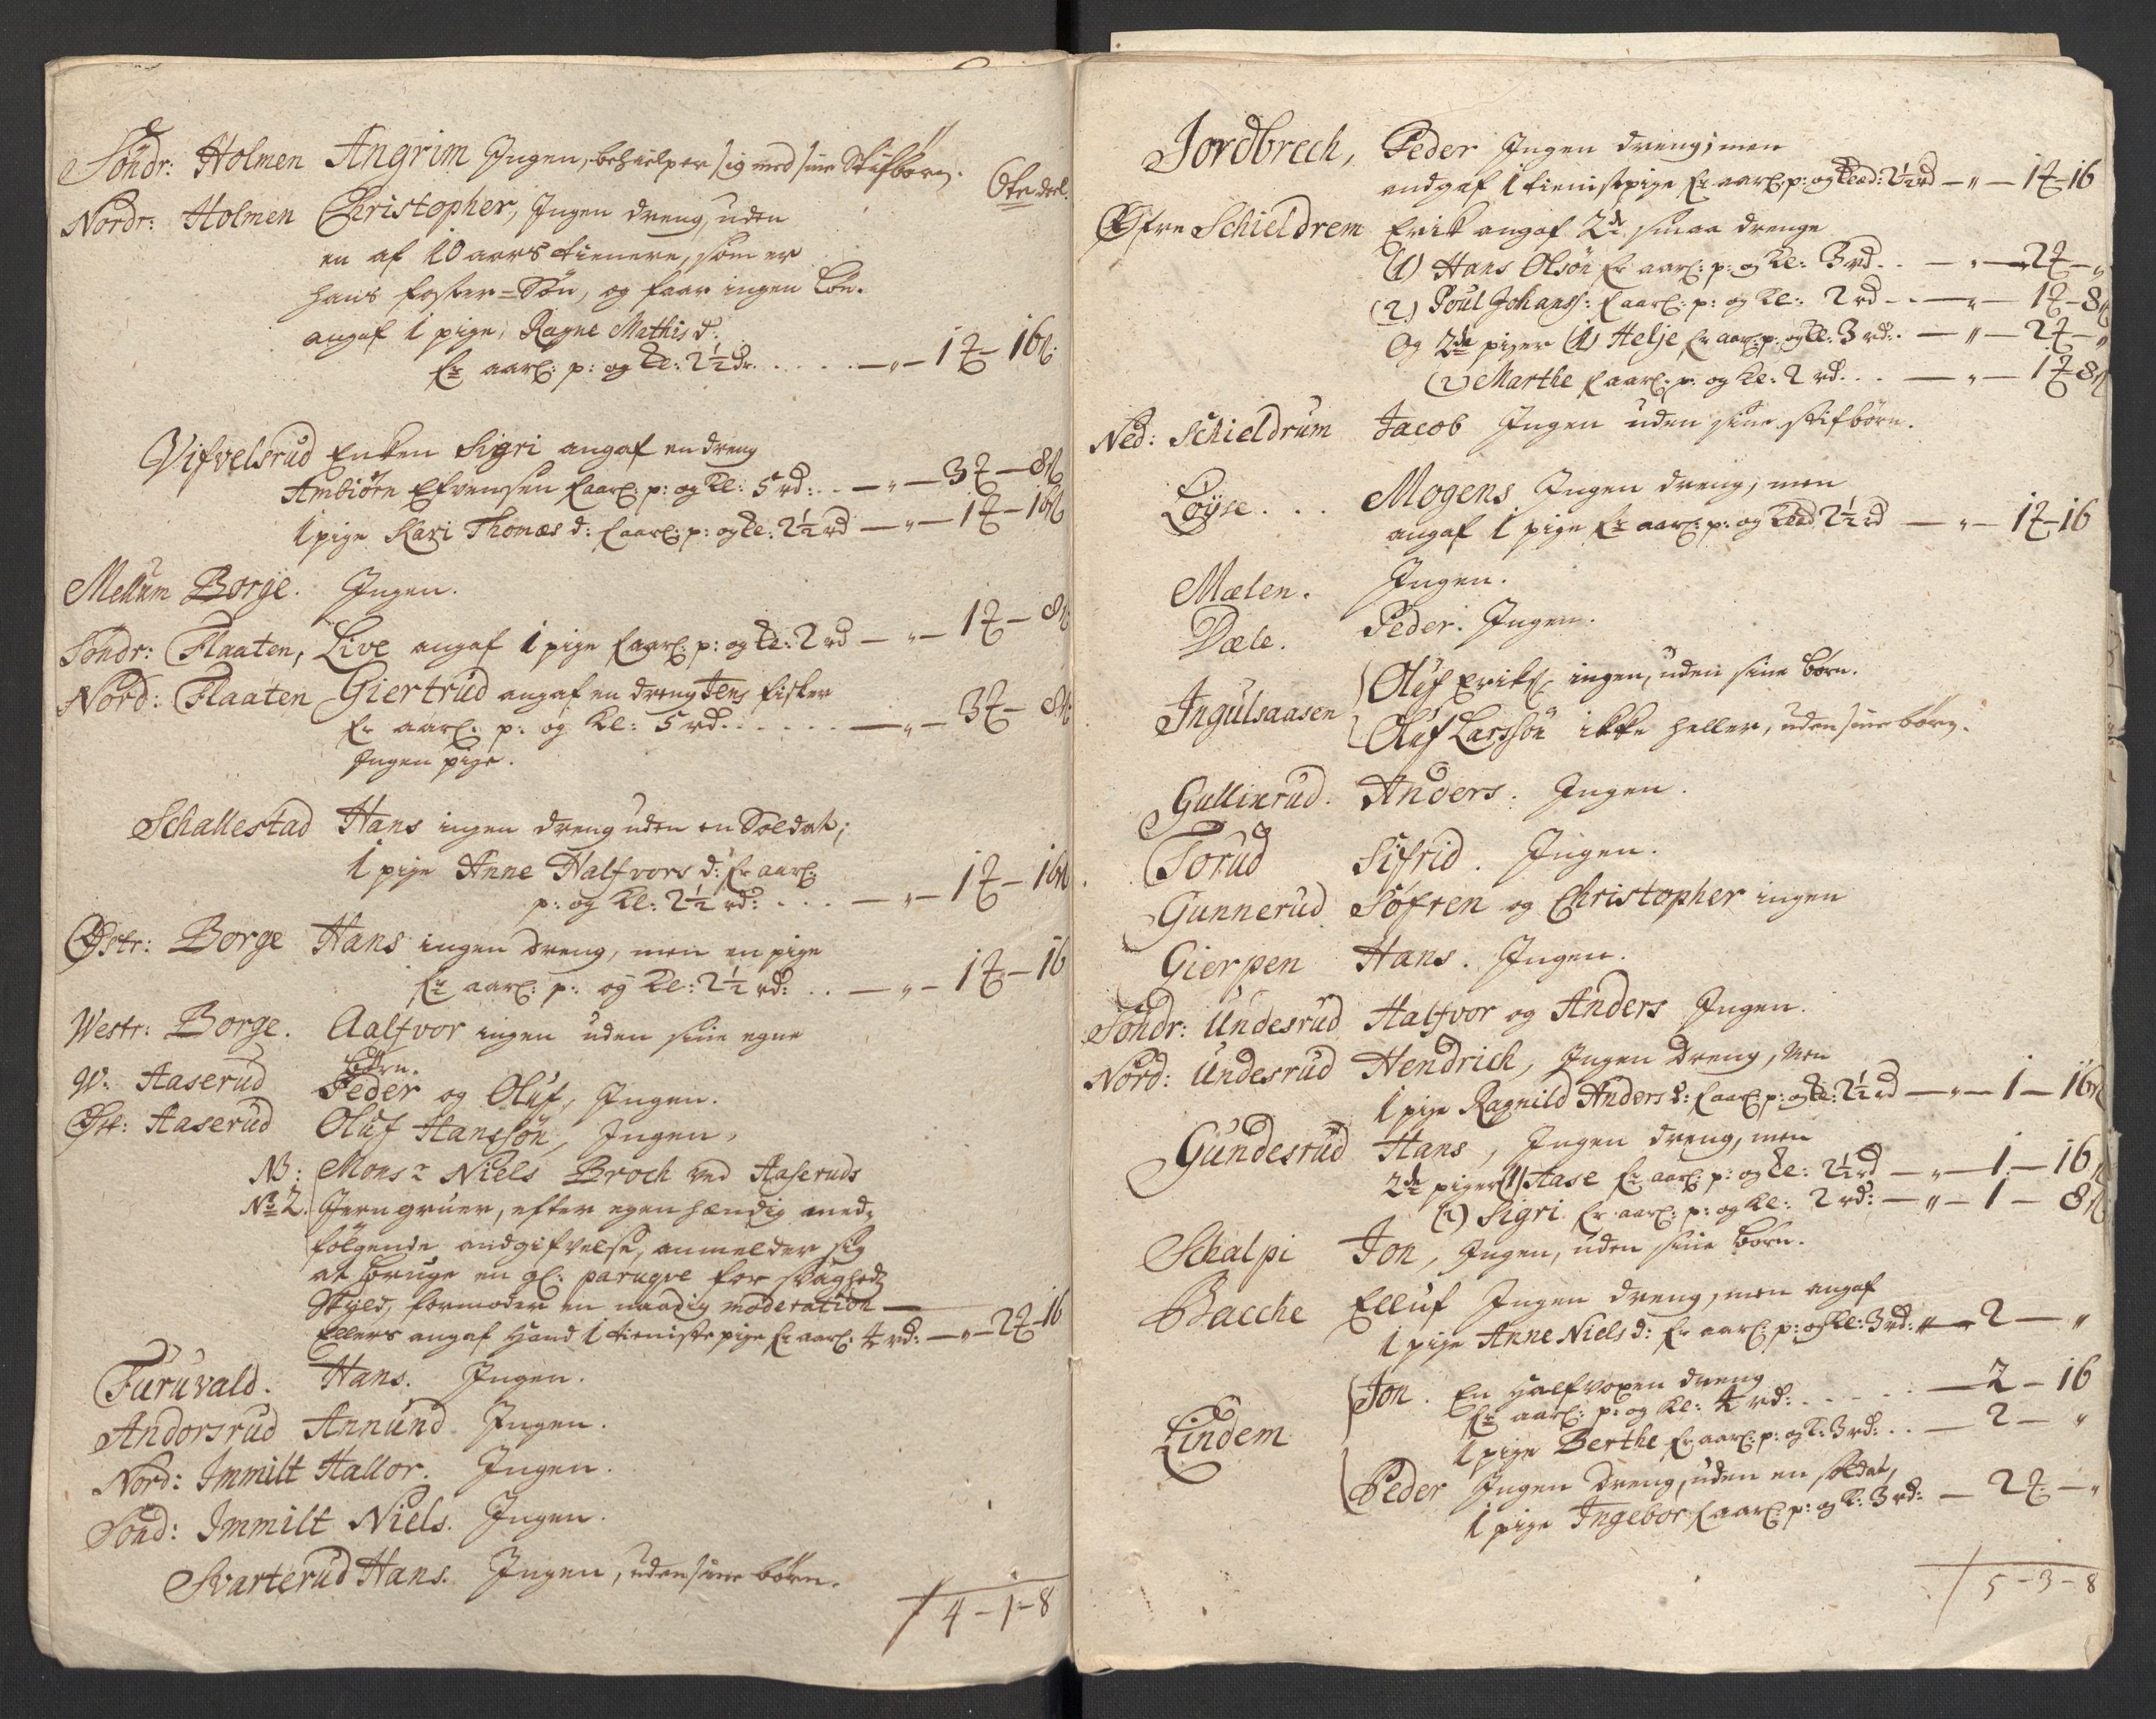 Söndr: Holmen Angrim Ingen, behielper sig med sine Stifbörn.
6te deel.
Nordr: Holmen Christopher, Ingen dreng, uden
en af 10 aars tienere, som er
hans foster-Sön, og faar ingen Lön.
angaf 1 pige, Ragne Mathisd:
fr aarl: p: og kl: 2½ dr. . . . . — „ — 1 ℔ — 16 ß.
Vifvelsrud Enken Sigri angaf en dreng
Ambiörn Efvensen f aarl: p: og kl: 5 rd: . . — „ — 3 ℔ — 8 ß
1 pige Kari Thomæs d: f aarl: p: og kl: 2½ rd — „ — 1 ℔ — 16 ß
Mellum Borge. Ingen.
Söndr: Flaaten, Live angaf 1 pige f aarl: p: og kl: 2 rd — „ — 1 ℔ — 8 ß
Nord: Flaaten Giertrud angaf en dreng Jens fisker
fr aarl: p: og kl: 5 rd. . . . . — „ — 3 ℔ — 8 ß.
Ingen pige.
Schallestad Hans ingen dreng uden en Soldat;
1 pige Anne Halfvors d: fr aarl:
p: og kl: 2½ rd: . . . — „ — 1 ℔ — 16 ß
Østr: Borge Hans ingen dreng, men en pige
fr aarl: p: og kl: 2½ rd: . . — „ — 1 ℔ — 16
Westr: Borge. Aalfvor ingen uden sine egne
börn.
W: Aaserud Peder og Oluf, Ingen.
Øst: Aaserud Oluf Hanssön, Ingen,
NB: Monsr Niels Broch ved Aaseruds
No 2. Jerngruer, efter egenhændig med-
fölgende andgifvelse, anmelder sig
at bruge en gl: paruqve for svaghed
skyld, formoder en naadig moderation —
Ellers angaf Hand 1 tieniste pige fr aarl: 4 rd: — „ — 2 ℔ 16
Furuvald. Hans. Ingen.
Andorsrud Annund. Ingen.
Nord: Immilt Hallor. Ingen.
Sönd: Immilt Niels. Ingen.
Svarterud Hans. Ingen, uden sine börn.
4 — 1 — 8
Jordbrech, Peder Ingen dreng; men
andgaf 1 tienistepige fr aarl: p: og klæd: 2½ rd — „ — 1 ℔ 16
Øfre Schieldrem Erik angaf 2de smaa drenge
(1) Hans Olsön fr aarl: p: og kl: 3 rd. . — „ — 2 ℔ — „
(2) Poul Johans: f aarl: p: og kl: 2 rd . . — „ — 1 ℔ — 8 ß
Og 2de piger (1) Helje fr aarl: p: og kl: 3 rd: . — „ — 2 ℔ — „
(2) Marthe f aarl: p: og kl: 2 rd. . . — „ — 1 ℔ 8 ß
Ned: Schieldrum Jacob Ingen uden sine stifbörn.
Löyse . . . Mogens Ingen dreng; men
angaf 1 pige fr aarl: p: og klæd 2½ rd — „ — 1 ℔ 16
Mælen. Ingen.
Dæle. Peder. Ingen.
Ingulsaasen Oluf Eriks: ingen, uden sine börn.
Oluf Larssön ikke heller, uden sine börn.
Gullinrud. Anders. Ingen.
Torud Sifrid. Ingen.
Gunnerud Söfren og Christopher ingen
Gierpen Hans. Ingen.
Söndr: Undesrud Halfvor og Anders Ingen.
Nord: Undesrud Hendrich, Ingen dreng, Men
1 pige Ragnild Anders d: f aarl: p: og kl: 2½ rd — „ — 1 — 16 ß
Gundesrud Hans, Ingen dreng, men
2de piger (1) Aase fr aarl: p: og kl: 2½ rd — „ — 1 — 16 ß
(2) Sigri fr aarl: p: og kl: 2 rd: — „ — 1 — 8 ß
Schalpi Jon, Ingen, uden sine börn.
Bacche Elluf Ingen dreng, men angaf
1 pige Anne Niels d: fr aarl: p: og kl: 3 rd: „ — 2 — „
Lindem Jon. En halfvoxen dreng
fr aarl: p: og kl: 4 rd: . . . . — 2 — 16
1 pige Berthe fr aarl: p: og k: 3 rd: . . — 2 — „
Peder Ingen dreng, uden en soldat,
1 pige Ingebor f aarl: p: og k: 3 rd: — 2 ℔ — „
5 — 3 — 8